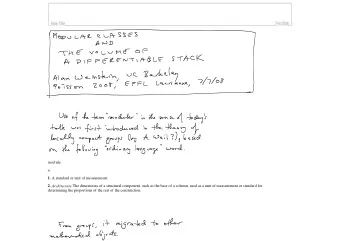 MODULAR CLASSES
AND
THE VOLUME OF
A DIFFERENTIABLE STACK
Alan Weinstein, UC Berkeley
Poisson 2008, EPFL Lausanne, 7/7/08
Use of the term "modular" in the sense of today's
talk was first introduced in the theory of
locally compact groups (by A. Weil?), based
on the following "ordinary language" word.
module
n
1. A standard or unit of measurement.
2. Architecture The dimensions of a structural component, such as the base of a column, used as a unit of measurement or standard for
determining the proportions of the rest of the construction.
From groups, it migrated to other
mathematical objects.